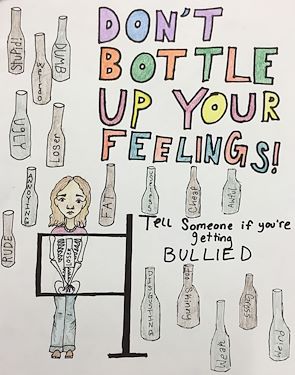 DON'T
BOTTLE
UP YOUR
FEELINGS!
Stupid!
DUMB
UGLY
Loser
ANNOYING
FAT
Cheap
Awful
RUDE
Tell Someone if you're
getting
BULLIED
LOSER
DISGUSTING
Skinny
Gross
Weak
Weird